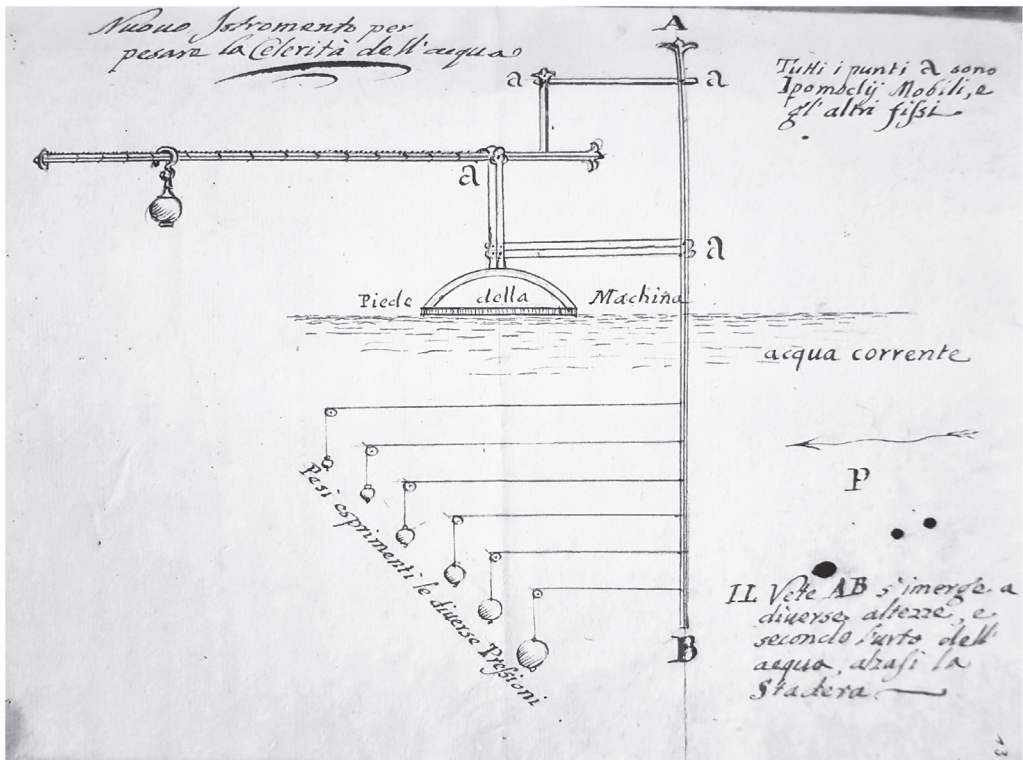 Nuouo Istromento per
pesare la Celerità dell'acqua
A
a
a
Tutti i punti a sono
Ipomoclij Mobili, e
gl'altri fissi.
a
a
Piede della Machina
acqua corrente
P
Pesi esprimenti le diuerse Pressioni
IL Vete AB s'imerge a
diuerse altezze, e
secondo l'urto dell'
acqua, alzasi la
Stadera
B